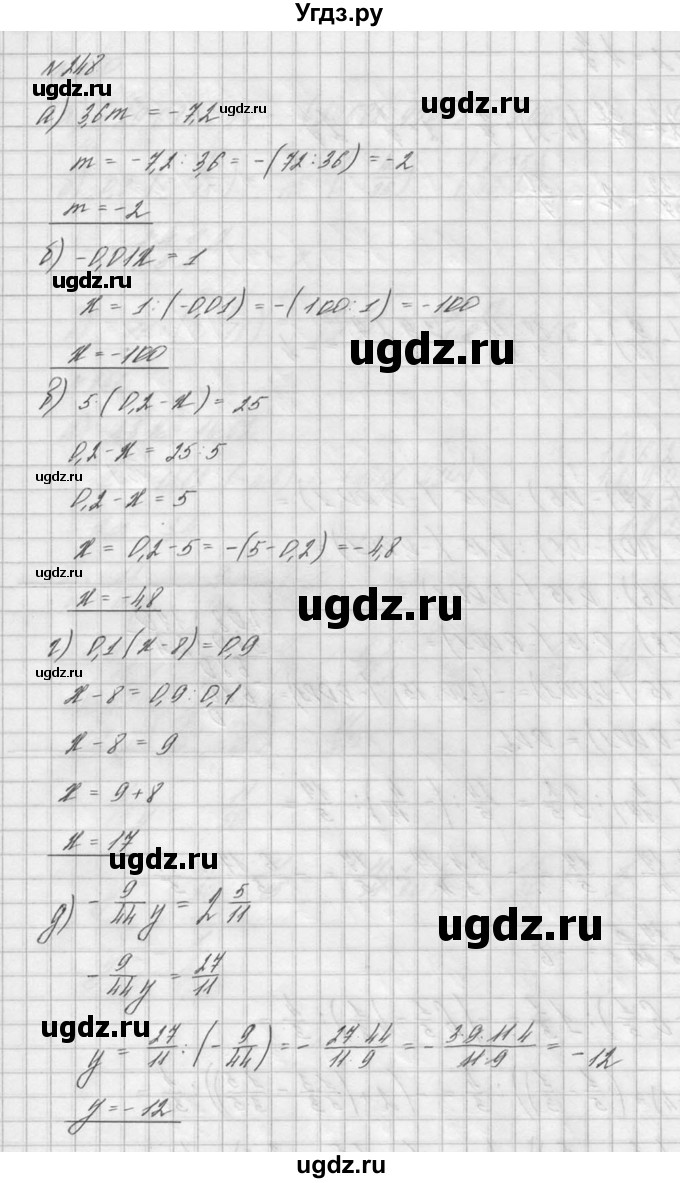 Угдз.ру
№248
ugdz.ru
а) 3,6m = -7,2
ugdz.ru
ugdz.ru
m = -7,2 : 3,6 = -(72:36) = -2
m = -2
б) -0,01x = 1
ugdz.ru
x = 1 : (-0,01) = -(100:1) = -100
ugdz.ru
x = -100
в) 5·(0,2-x) = 25
0,2-x = 25:5
ugdz.ru
0,2-x = 5
x = 0,2-5 = -(5-0,2) = -4,8
ugdz.ru
x = -4,8
ugdz.ru
г) 0,1(x-8) = 0,9
ugdz.ru
x-8 = 0,9:0,1
x-8 = 9
x = 9+8
x = 17
ugdz.ru
д) -9/44 y = 2 5/11
ugdz.ru
-9/44 y = 27/11
ugdz.ru
y = 27/11 : (-9/44) = -27·44/11·9 = -3·9·11·4/11·9 = -12
y = -12
ugdz.ru